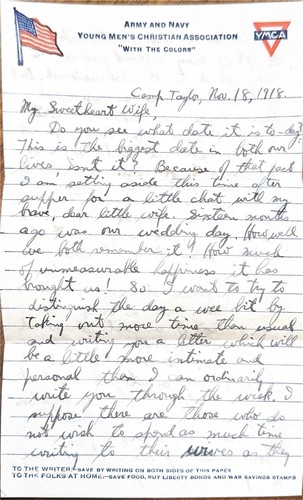 ARMY AND NAVY
YOUNG MEN'S CHRISTIAN ASSOCIATION
"WITH THE COLORS"
YMCA
Camp Taylor, Nov. 18, 1918.
My Sweetheart Wife,
Do you see what date it is to-day?
This is the biggest date in both our
lives, isn't it? Because of that fact
I am setting aside this time after
supper for a little chat with my
brave, dear little wife. Sixteen months
ago was our wedding day. How well
we both remember it! How much
of unmeasurable happiness it has
brought us! So I want to try to
distinguish the day a wee bit by
taking out more time than usual
and writing you a letter which will
be a little more intimate and
personal than I am ordinarily
write you through the week. I
suppose there are those who do
not wish to spend as much time
writing to their wives as they
TO THE WRITER—SAVE BY WRITING ON BOTH SIDES OF THIS PAPER
TO THE FOLKS AT HOME—SAVE FOOD, BUY LIBERTY BONDS AND WAR SAVINGS STAMPS